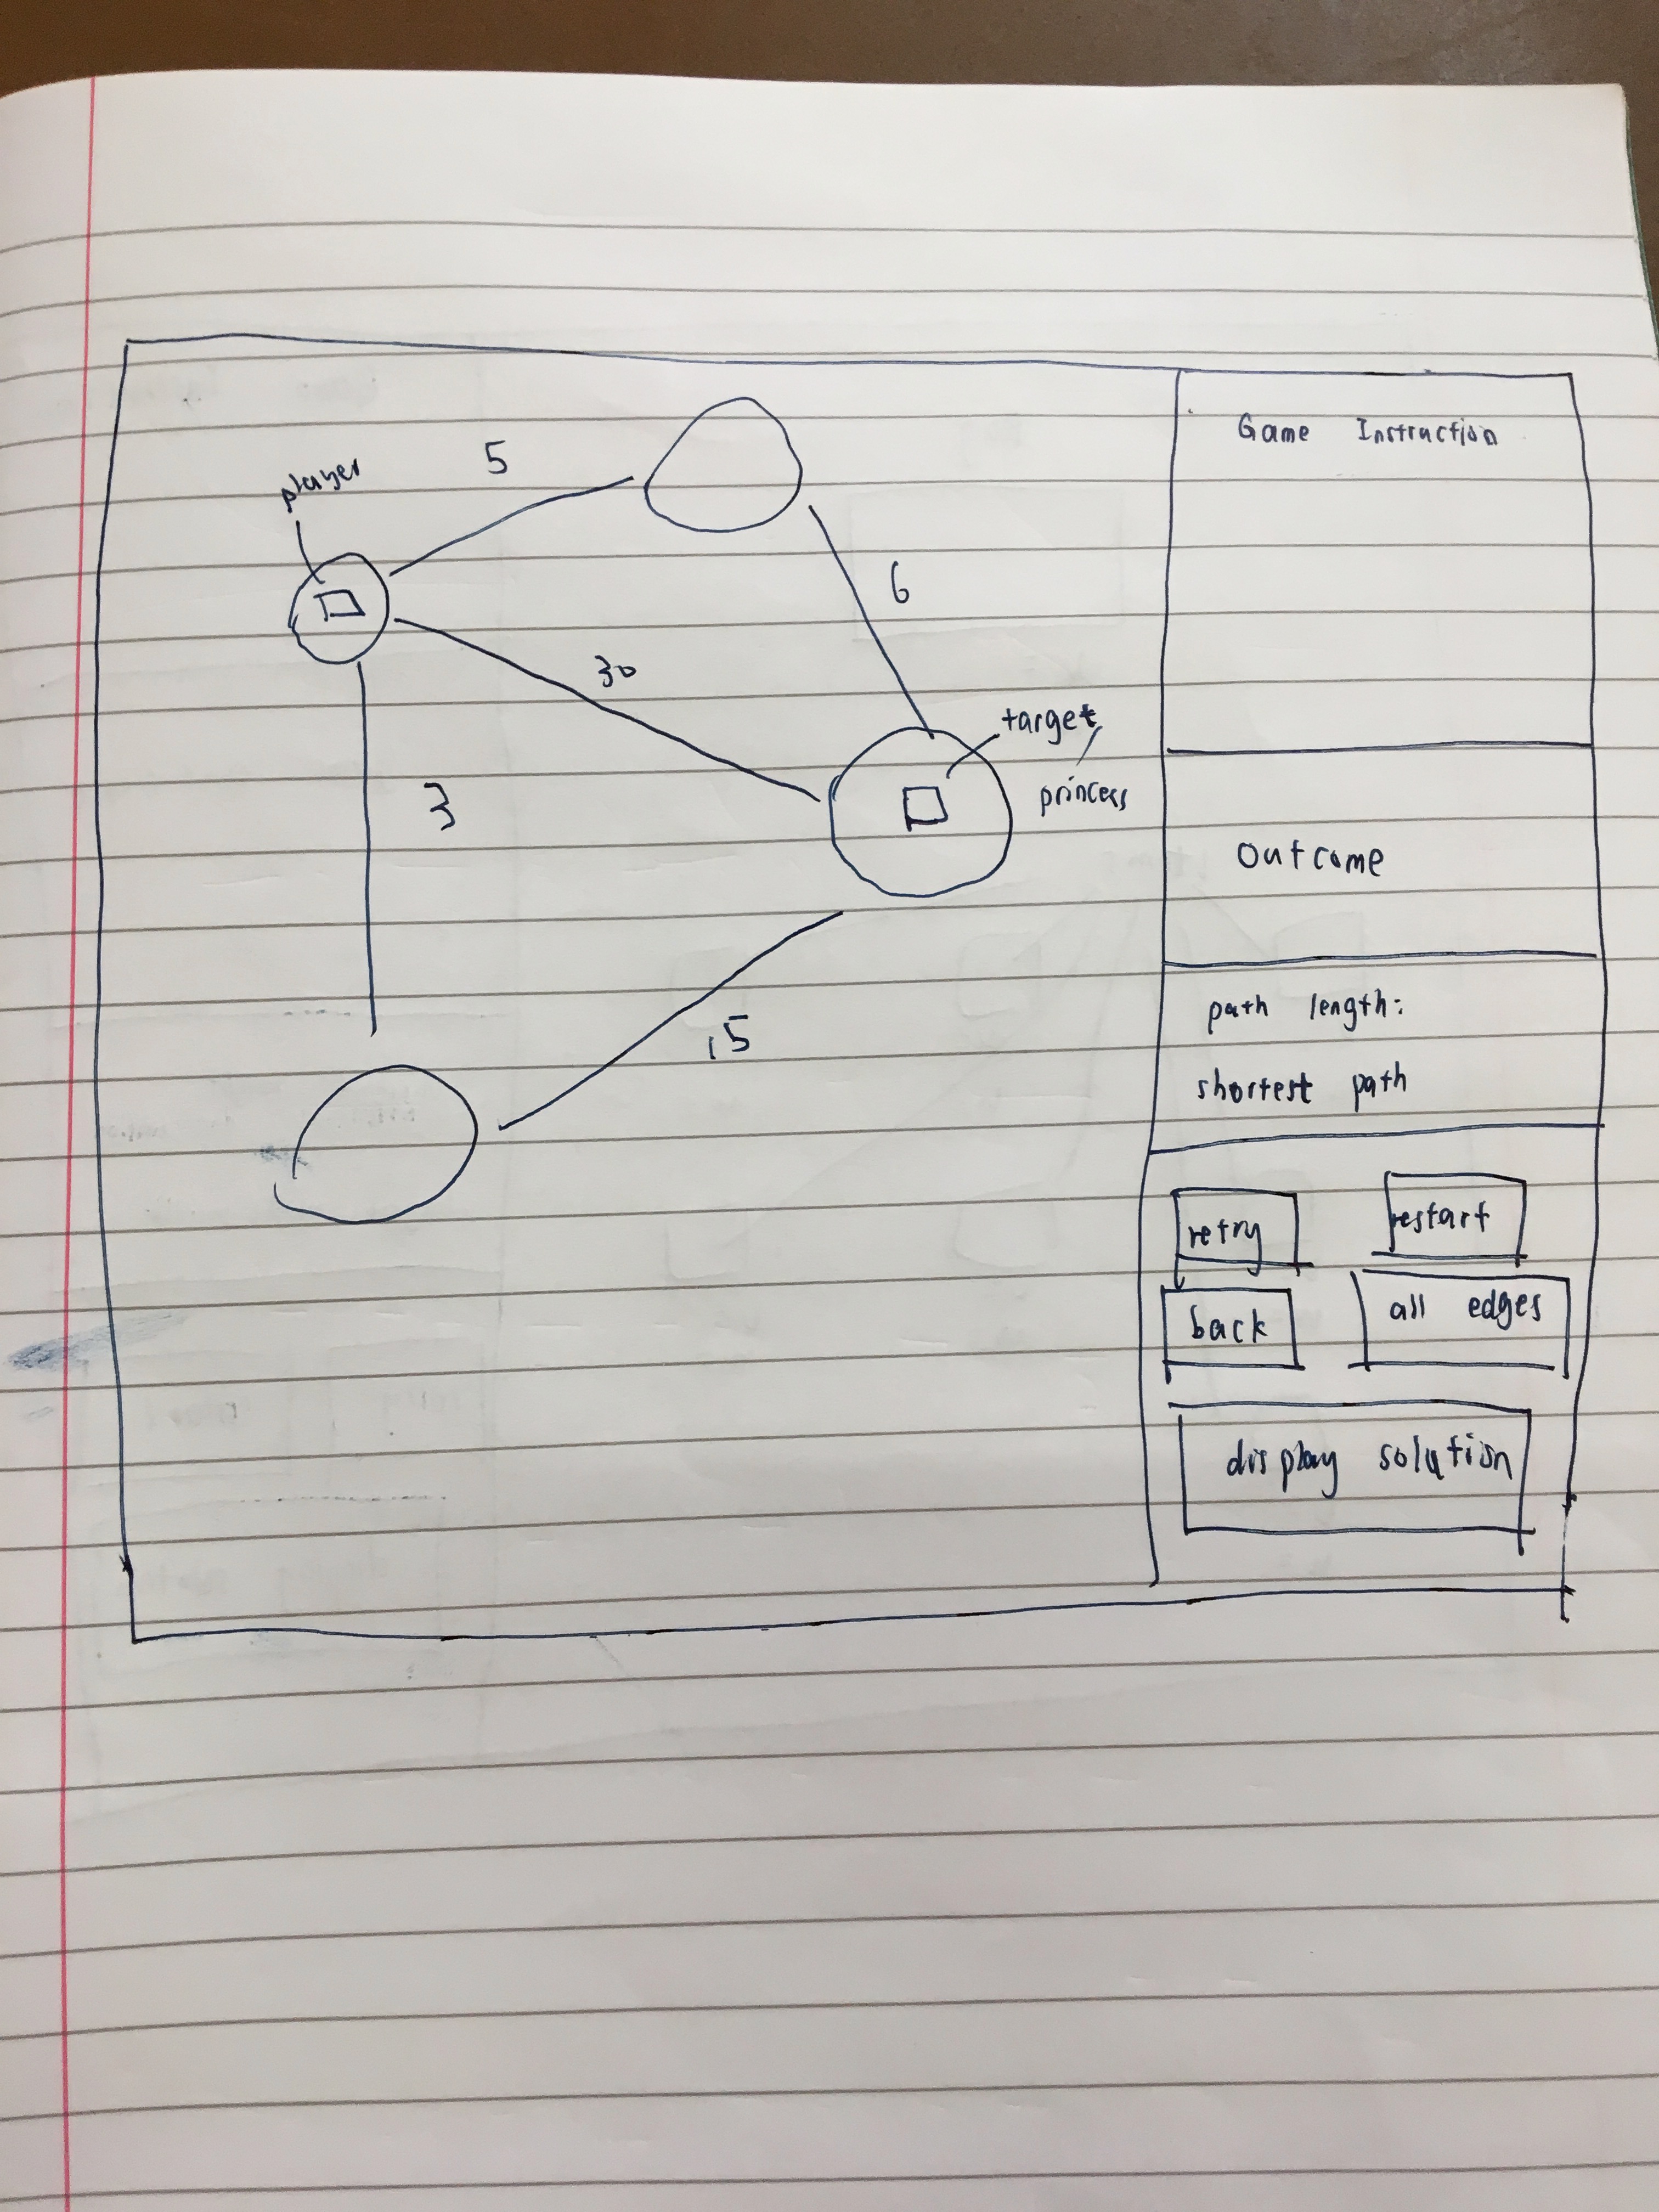 player
5
6
30
target/
princess
3
15
Game Instruction
Outcome
path length:
shortest path
retry
restart
back
all edges
display solution